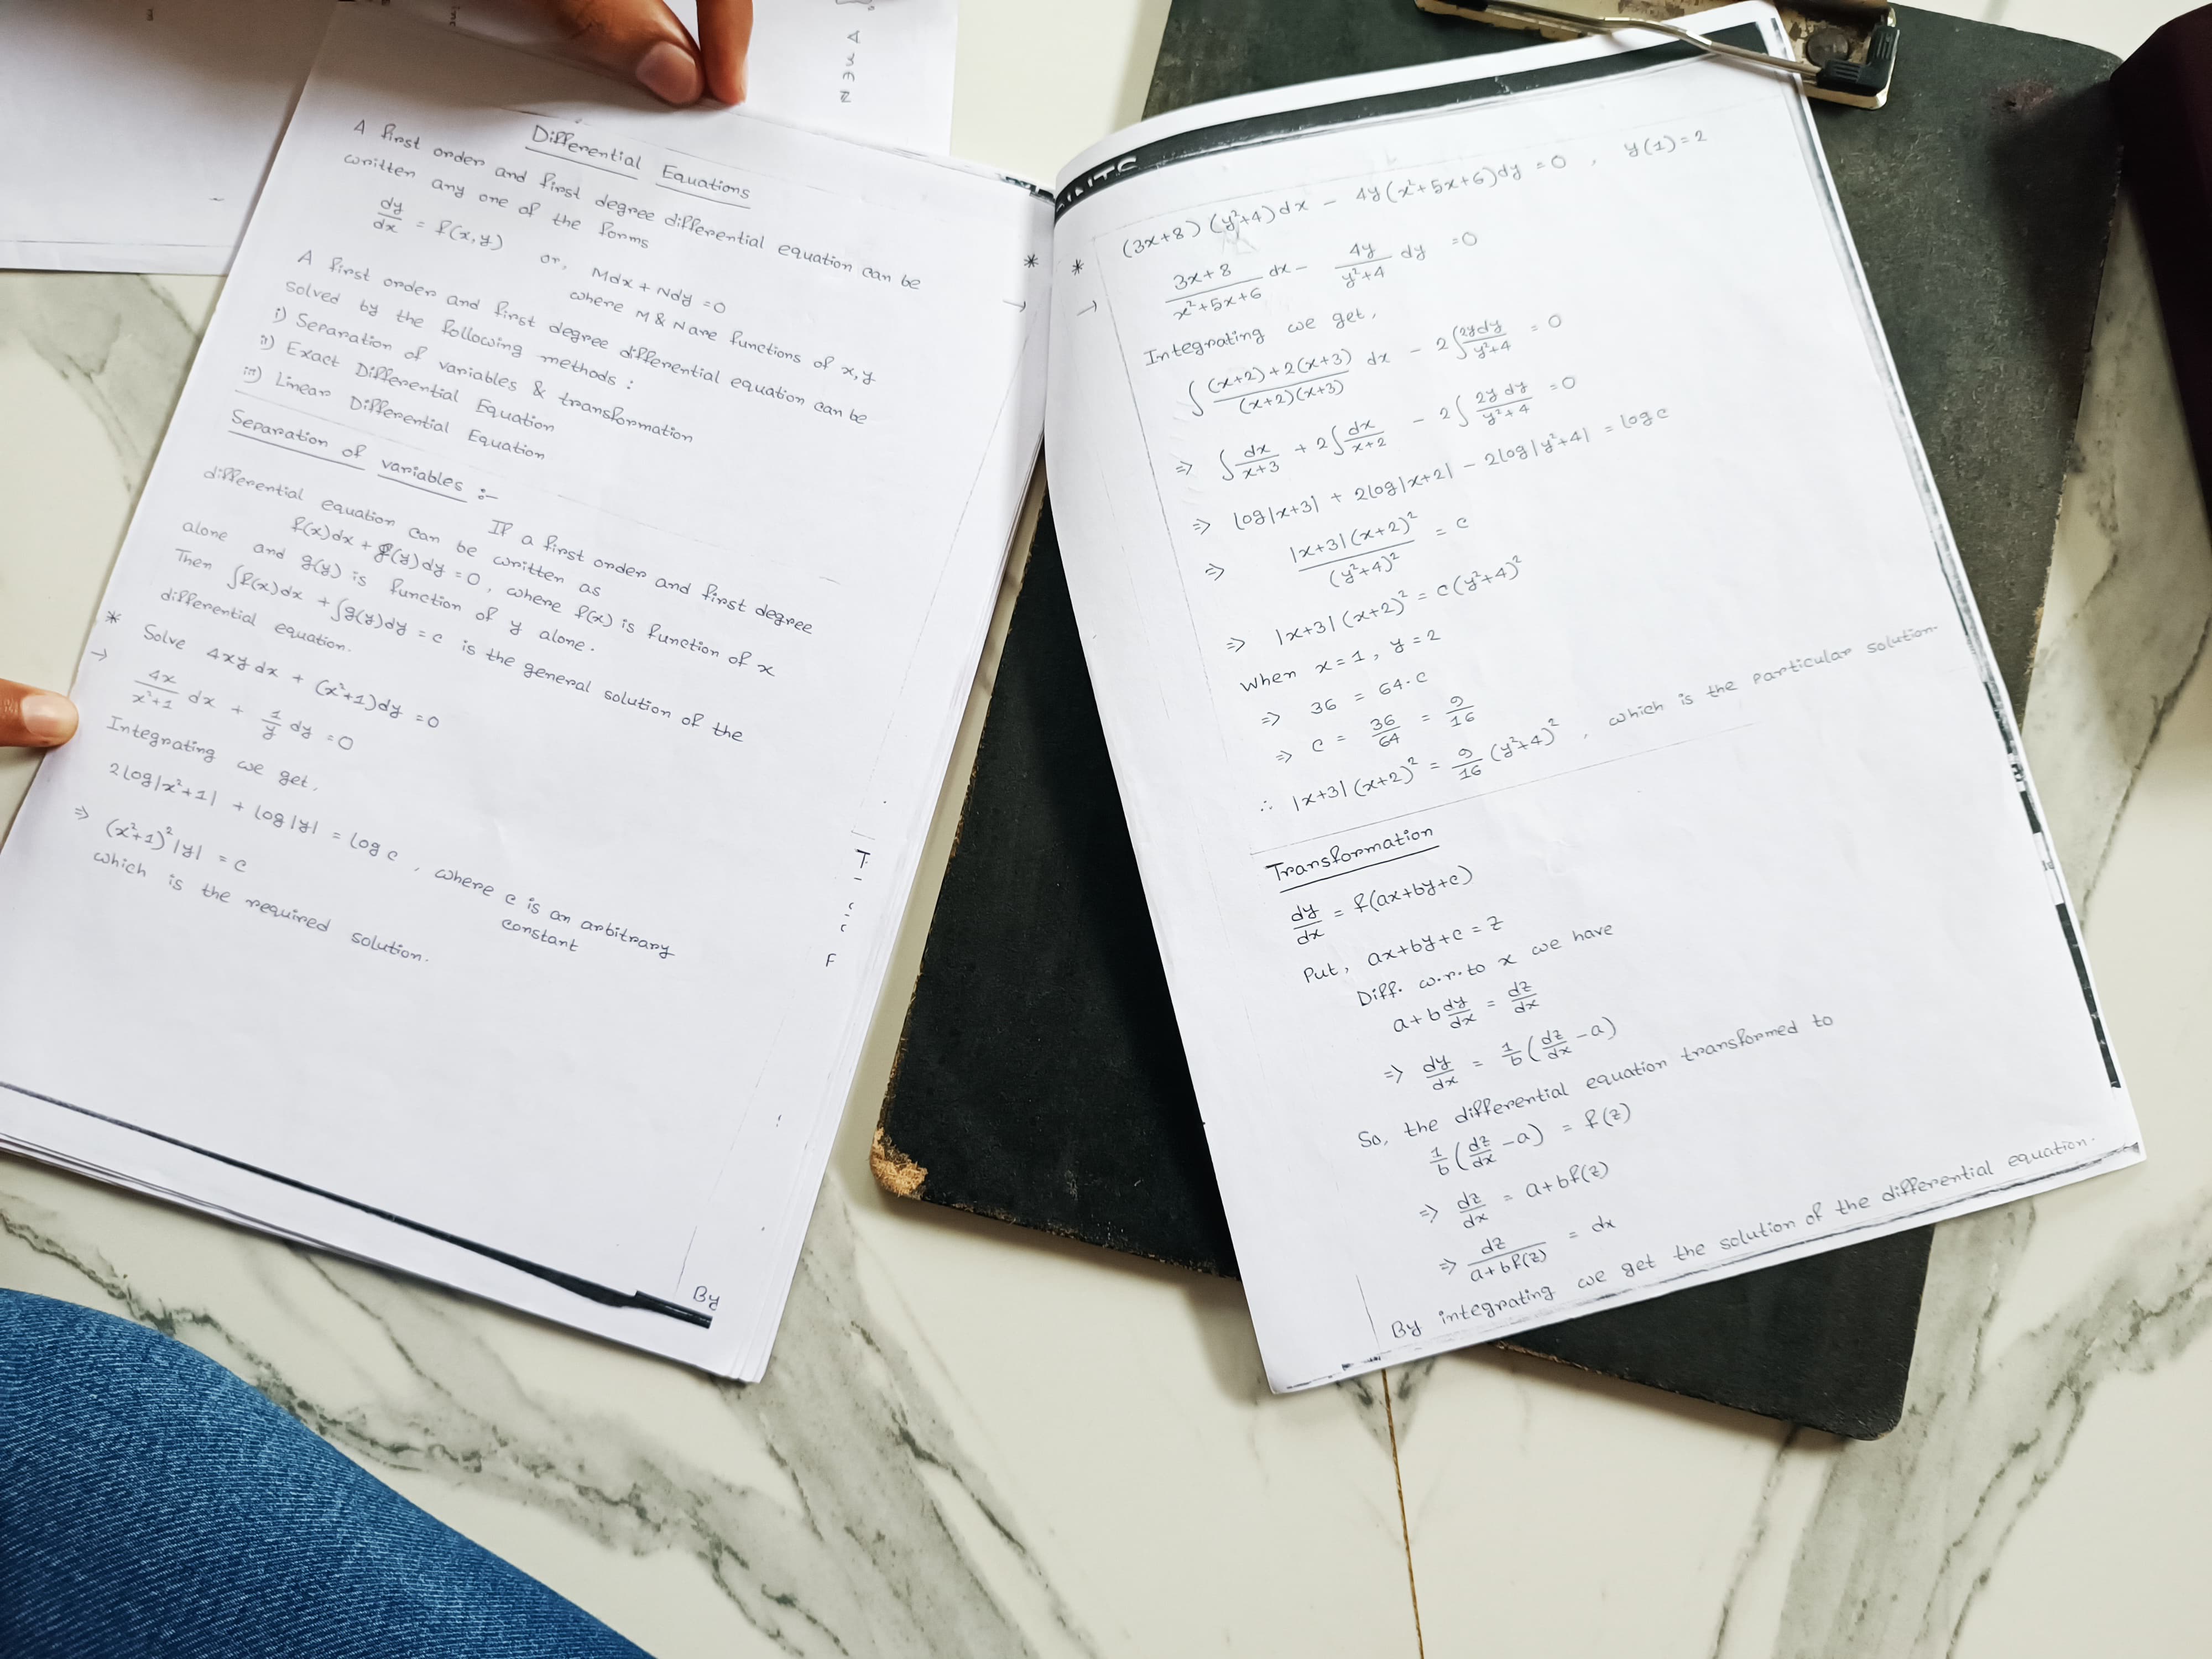 Differential Equations
A first order and first degree differential equation can be
written any one of the forms
dy/dx = f(x,y) or, Mdx + Ndy = 0
where M & N are functions of x,y
A first order and first degree differential equation can be
solved by the following methods :
i) Separation of variables & transformation
ii) Exact Differential Equation
iii) Linear Differential Equation
Separation of variables :-
If a first order and first degree
differential equation can be written as
f(x)dx + g(y)dy = 0, where f(x) is function of x
alone and g(y) is function of y alone.
Then ∫f(x)dx + ∫g(y)dy = c is the general solution of the
differential equation.
* Solve 4xy dx + (x²+1)dy = 0
→ 4x/(x²+1) dx + 1/y dy = 0
Integrating we get,
2log|x²+1| + log|y| = log c , where c is an arbitrary
constant
⇒ (x²+1)²|y| = c
which is the required solution.
By
* (3x+8)(y²+4)dx - 4y(x²+5x+6)dy = 0 , y(1)=2
→ (3x+8)/(x²+5x+6) dx - 4y/(y²+4) dy = 0
Integrating we get,
∫ ((x+2)+2(x+3))/((x+2)(x+3)) dx - 2∫ 2ydy/(y²+4) = 0
⇒ ∫ dx/(x+3) + 2∫ dx/(x+2) - 2∫ 2y dy/(y²+4) = 0
⇒ log|x+3| + 2log|x+2| - 2log|y²+4| = log c
⇒ |x+3|(x+2)²/(y²+4)² = c
⇒ |x+3|(x+2)² = c(y²+4)²
When x=1, y=2
⇒ 36 = 64.c
⇒ c = 36/64 = 9/16
∴ |x+3|(x+2)² = 9/16 (y²+4)² , which is the particular solution.
Transformation
dy/dx = f(ax+by+c)
Put, ax+by+c = z
Diff. w.r.to x we have
a+b dy/dx = dz/dx
⇒ dy/dx = 1/b (dz/dx - a)
So, the differential equation transformed to
1/b (dz/dx - a) = f(z)
⇒ dz/dx = a+bf(z)
⇒ dz/(a+bf(z)) = dx
By integrating we get the solution of the differential equation.